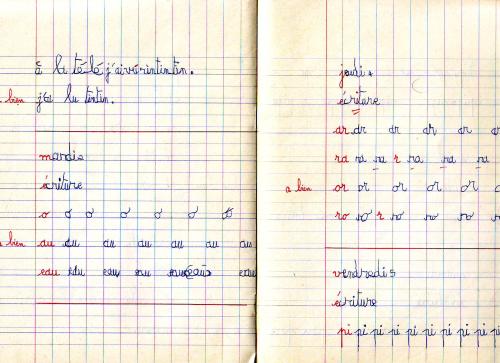 à la télé j'aivérintintin.
bien j'ai lu tintin.
mardis
écriture
o o o o o o o
a bien au au au au au au au
eau eau eau eau eau eau
jeudi
écriture
ar ar ar ar ar ar
ra ra ra r ra ra ra
a bien or or or or or
ro ro r ro ro ro ro
vendredis
écriture
pi pi pi pi pi pi pi pi pi pi